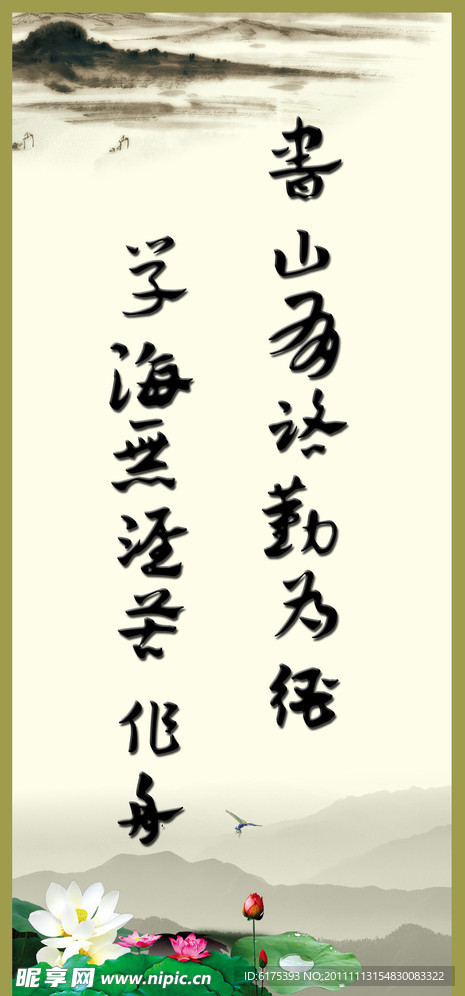 書山有路勤为徑
学海無涯苦作舟
昵享网 www.nipic.cn
ID:6175393 NO:20111113154830083322